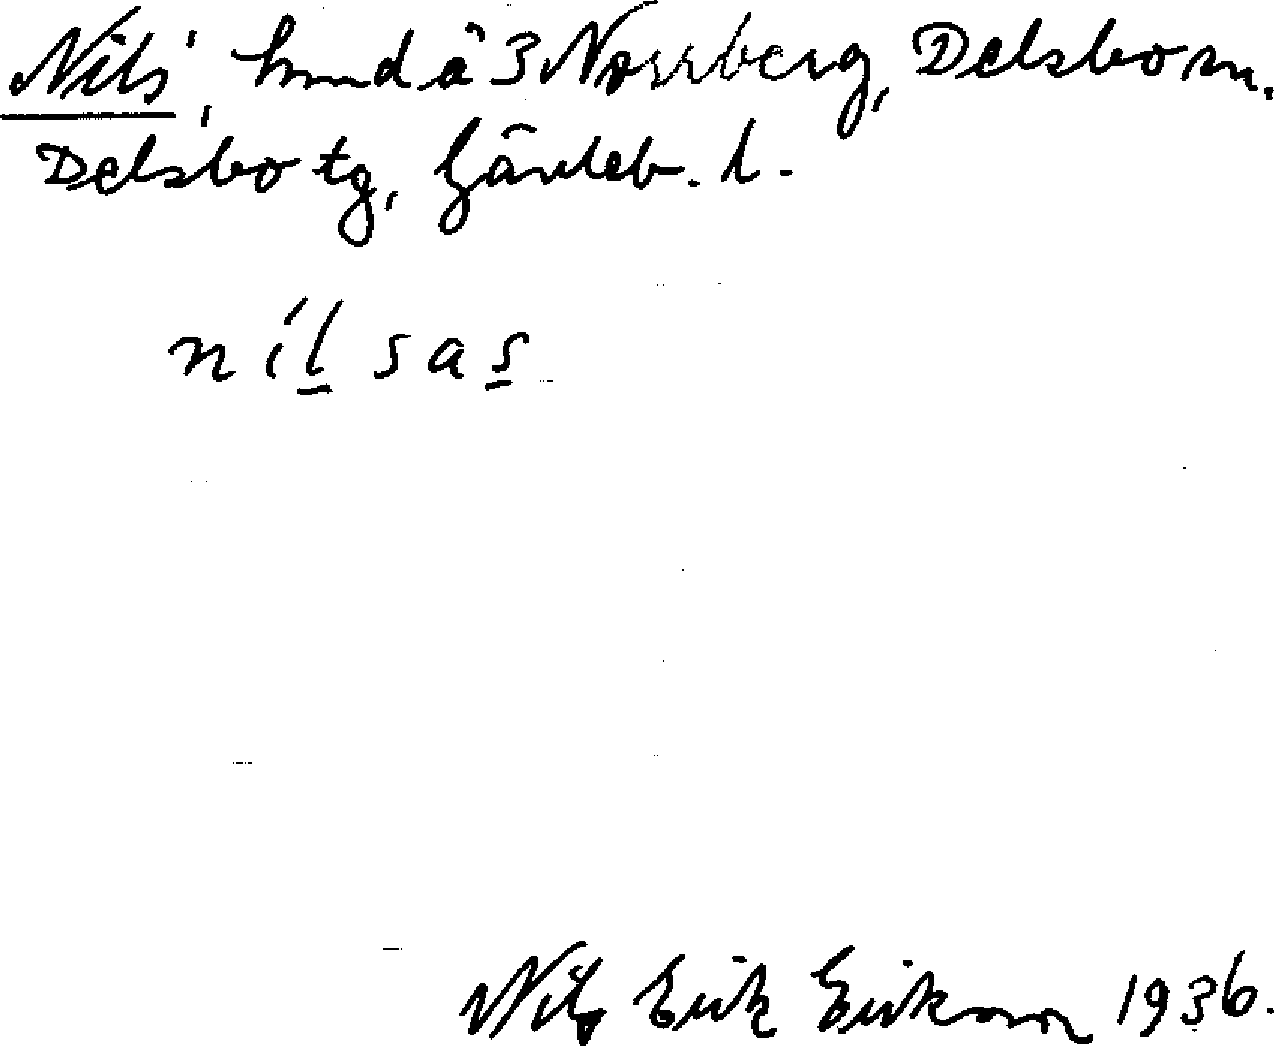 Nils', hmd å 3 Norrberg, Delsbo sn.
Delsbo tg, Gävleb. l.
nílsas
Nils Erik Erikson 1936.